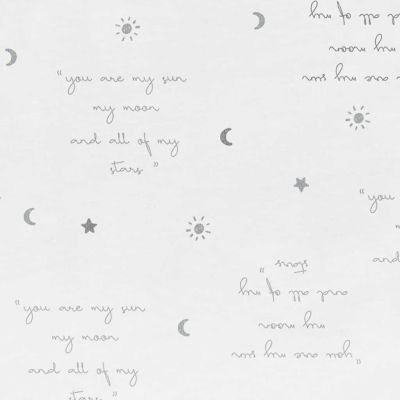 "you are my sun
my moon
and all of my
stars"
and all of my
my moon
you are my sun
"you
and
stars"
and all of my
my moon
"you are my sun
"you are my sun
my moon
and all of my
stars"